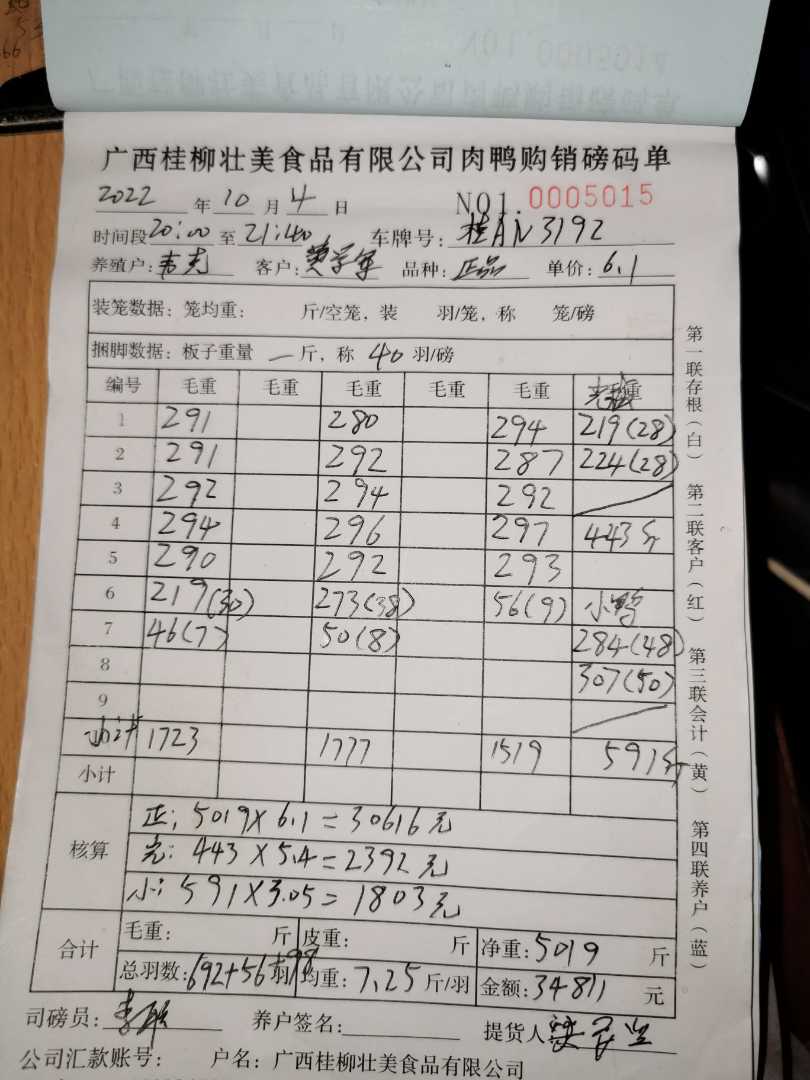 广西桂柳壮美食品有限公司肉鸭购销磅码单
2022 年 10 月 4 日 NO1. 0005015
时间段 20:00 至 21:40 车牌号: 桂AN3192
养殖户: 韦克 客户: 品种: 正品 单价: 6.1
装笼数据: 笼均重: 斤/空笼, 装 羽/笼, 称 笼/磅
捆脚数据: 板子重量 一 斤, 称 40 羽/磅
编号 毛重 毛重 毛重 毛重 毛重
1 291 280 294 219(28)
2 291 292 287 224(28)
3 292 294 292
4 294 296 297 443斤
5 290 292 293
6 219(30) 273(38) 56(9) 小鸭
7 46(7) 50(8) 284(48)
8 307(50)
9
小计 1723 1777 1519 591斤
小计
核算
正: 5019×6.1=30616元
壳: 443×5.4=2392元
小: 591×3.05=1803元
合计
毛重: 斤 皮重: 斤 净重: 5019 斤
总羽数: 692+56+98 羽 均重: 7.25 斤/羽 金额: 34811 元
司磅员: 养户签名: 提货人
公司汇款账号: 户名: 广西桂柳壮美食品有限公司
第一联存根(白) 第二联客户(红) 第三联会计(黄) 第四联养户(蓝)